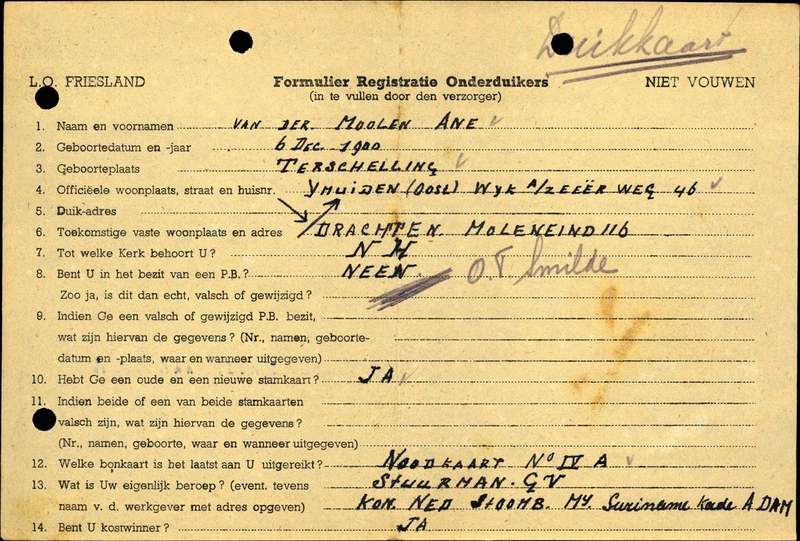 Duikkaart
L.O. FRIESLAND Formulier Registratie Onderduikers NIET VOUWEN
(in te vullen door den verzorger)
1. Naam en voornamen VAN DER MOOLEN ANE
2. Geboortedatum en -jaar 6 DEC 1900
3. Geboorteplaats TERSCHELLING
4. Officiëele woonplaats, straat en huisnr. YMUIDEN (OOST) WYK A/ZEEËR WEG 46
5. Duik-adres
6. Toekomstige vaste woonplaats en adres DRACHTEN MOLENEIND 116
7. Tot welke Kerk behoort U? N H
8. Bent U in het bezit van een P.B.? NEEN O.T. Smilde
Zoo ja, is dit dan echt, valsch of gewijzigd?
9. Indien Ge een valsch of gewijzigd P.B. bezit,
wat zijn hiervan de gegevens? (Nr., namen, geboorte-
datum en -plaats, waar en wanneer uitgegeven)
10. Hebt Ge een oude en een nieuwe stamkaart? JA
11. Indien beide of een van beide stamkaarten
valsch zijn, wat zijn hiervan de gegevens?
(Nr., namen, geboorte, waar en wanneer uitgegeven)
12. Welke bonkaart is het laatst aan U uitgereikt? NOODKAART No IV A
13. Wat is Uw eigenlijk beroep? (event. tevens STUURMAN. GV
naam v. d. werkgever met adres opgeven) KON. NED STOOMB. MY. Suriname kade A DAM
14. Bent U kostwinner? JA